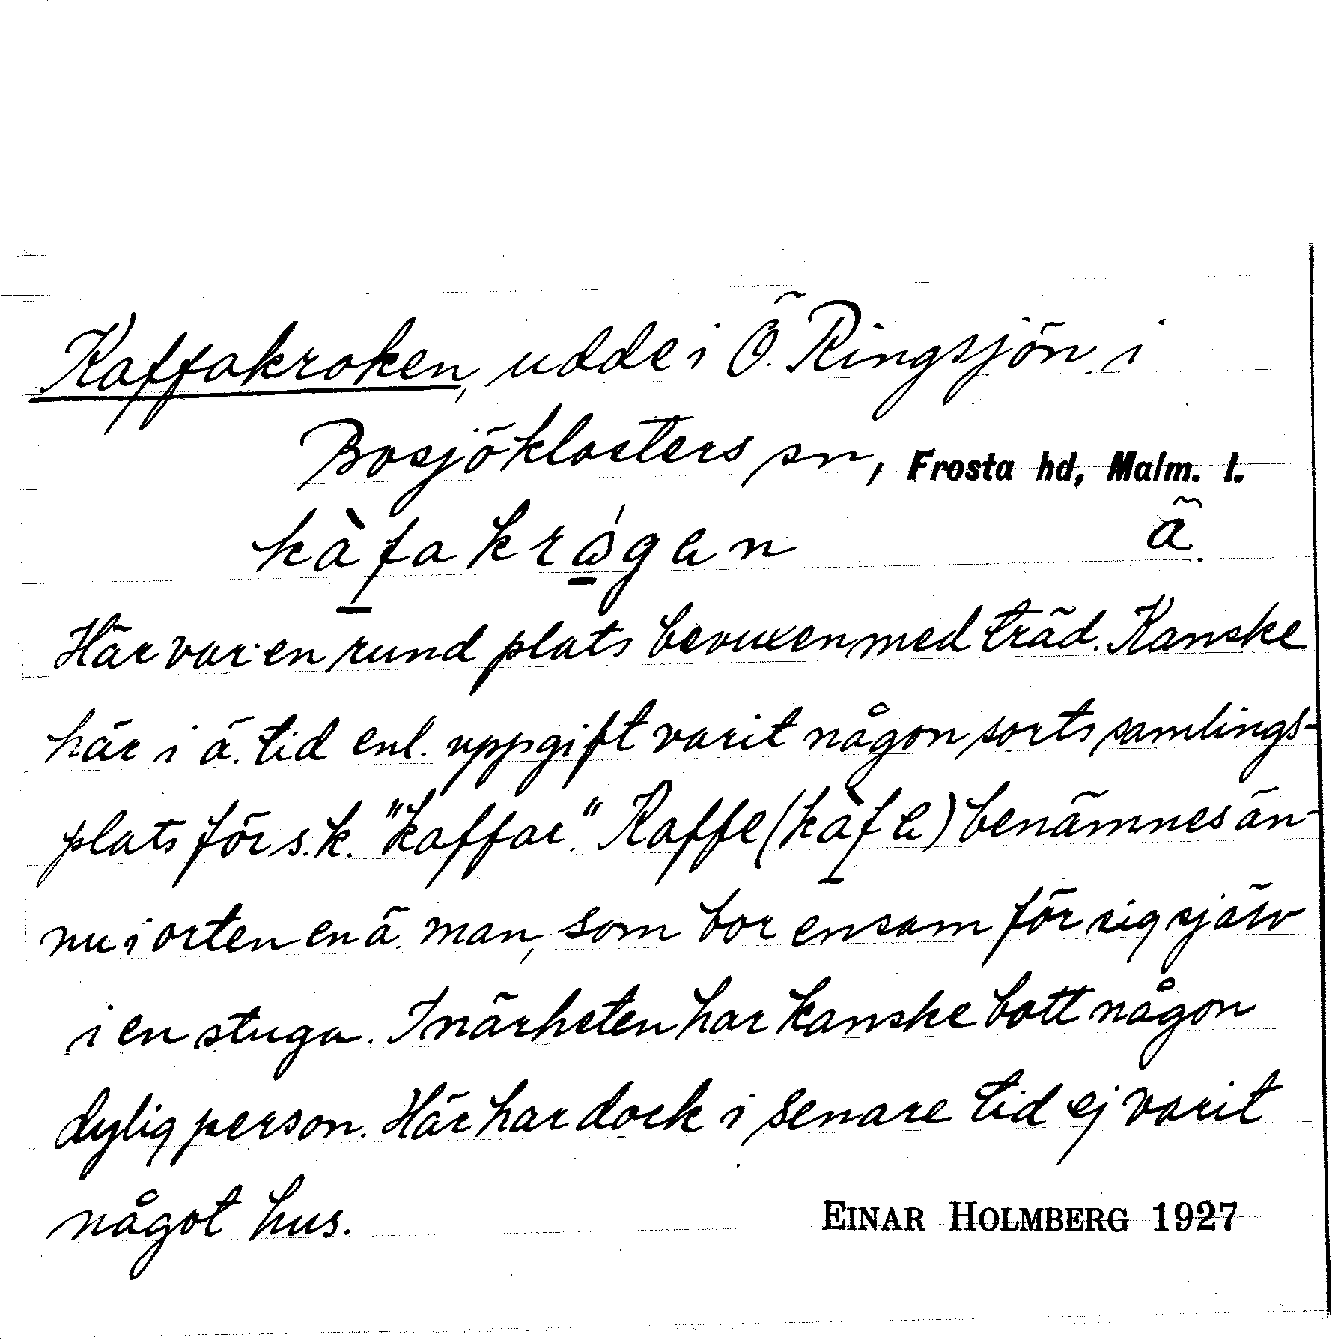 Kaffakroken, udde i Ö. Ringsjön i
Bosjöklosters sn, Frosta hd, Malm. l.
kàfakrógen ä.
Här var en rund plats bevuxen med träd. Kanske
här i ä. tid enl. uppgift varit någon sorts samlings-
plats för s.k. "kaffar." Kaffe (kàfe) benämnes än-
nu i orten en ä. man, som bor ensam för sig själv
i en stuga. I närheten har kanske bott någon
dylig person. Här har dock i senare tid ej varit
något hus. EINAR HOLMBERG 1927